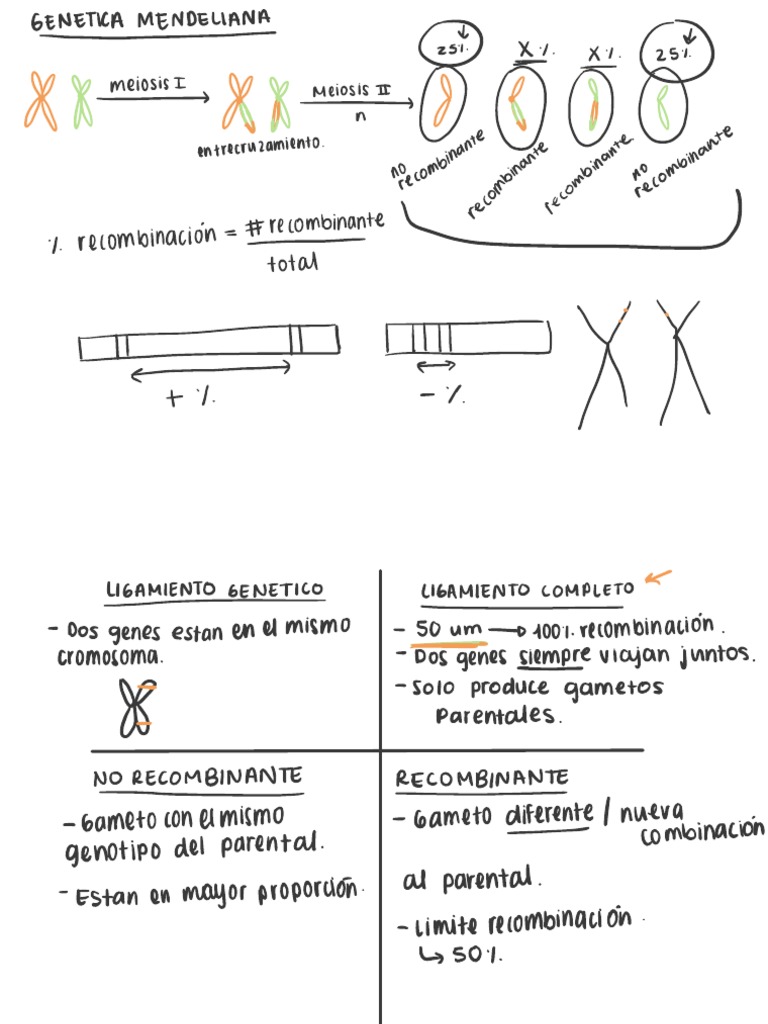 GENETICA MENDELIANA
25%. X%. X%. 25%.
meiosis I
Meiosis II
n
entrecruzamiento.
no recombinante
recombinante
recombinante
no recombinante
% recombinación = # recombinante
total
+ %.
- %.
LIGAMIENTO GENETICO
- Dos genes estan en el mismo
cromosoma.
LIGAMIENTO COMPLETO
- 50 um → 100%. recombinación.
- Dos genes siempre viajan juntos.
- Solo produce gametos
Parentales.
NO RECOMBINANTE
- Gameto con el mismo
genotipo del parental.
- Estan en mayor proporción.
RECOMBINANTE
- Gameto diferente / nueva
combinación
al parental.
- Limite recombinación.
↳ 50%.